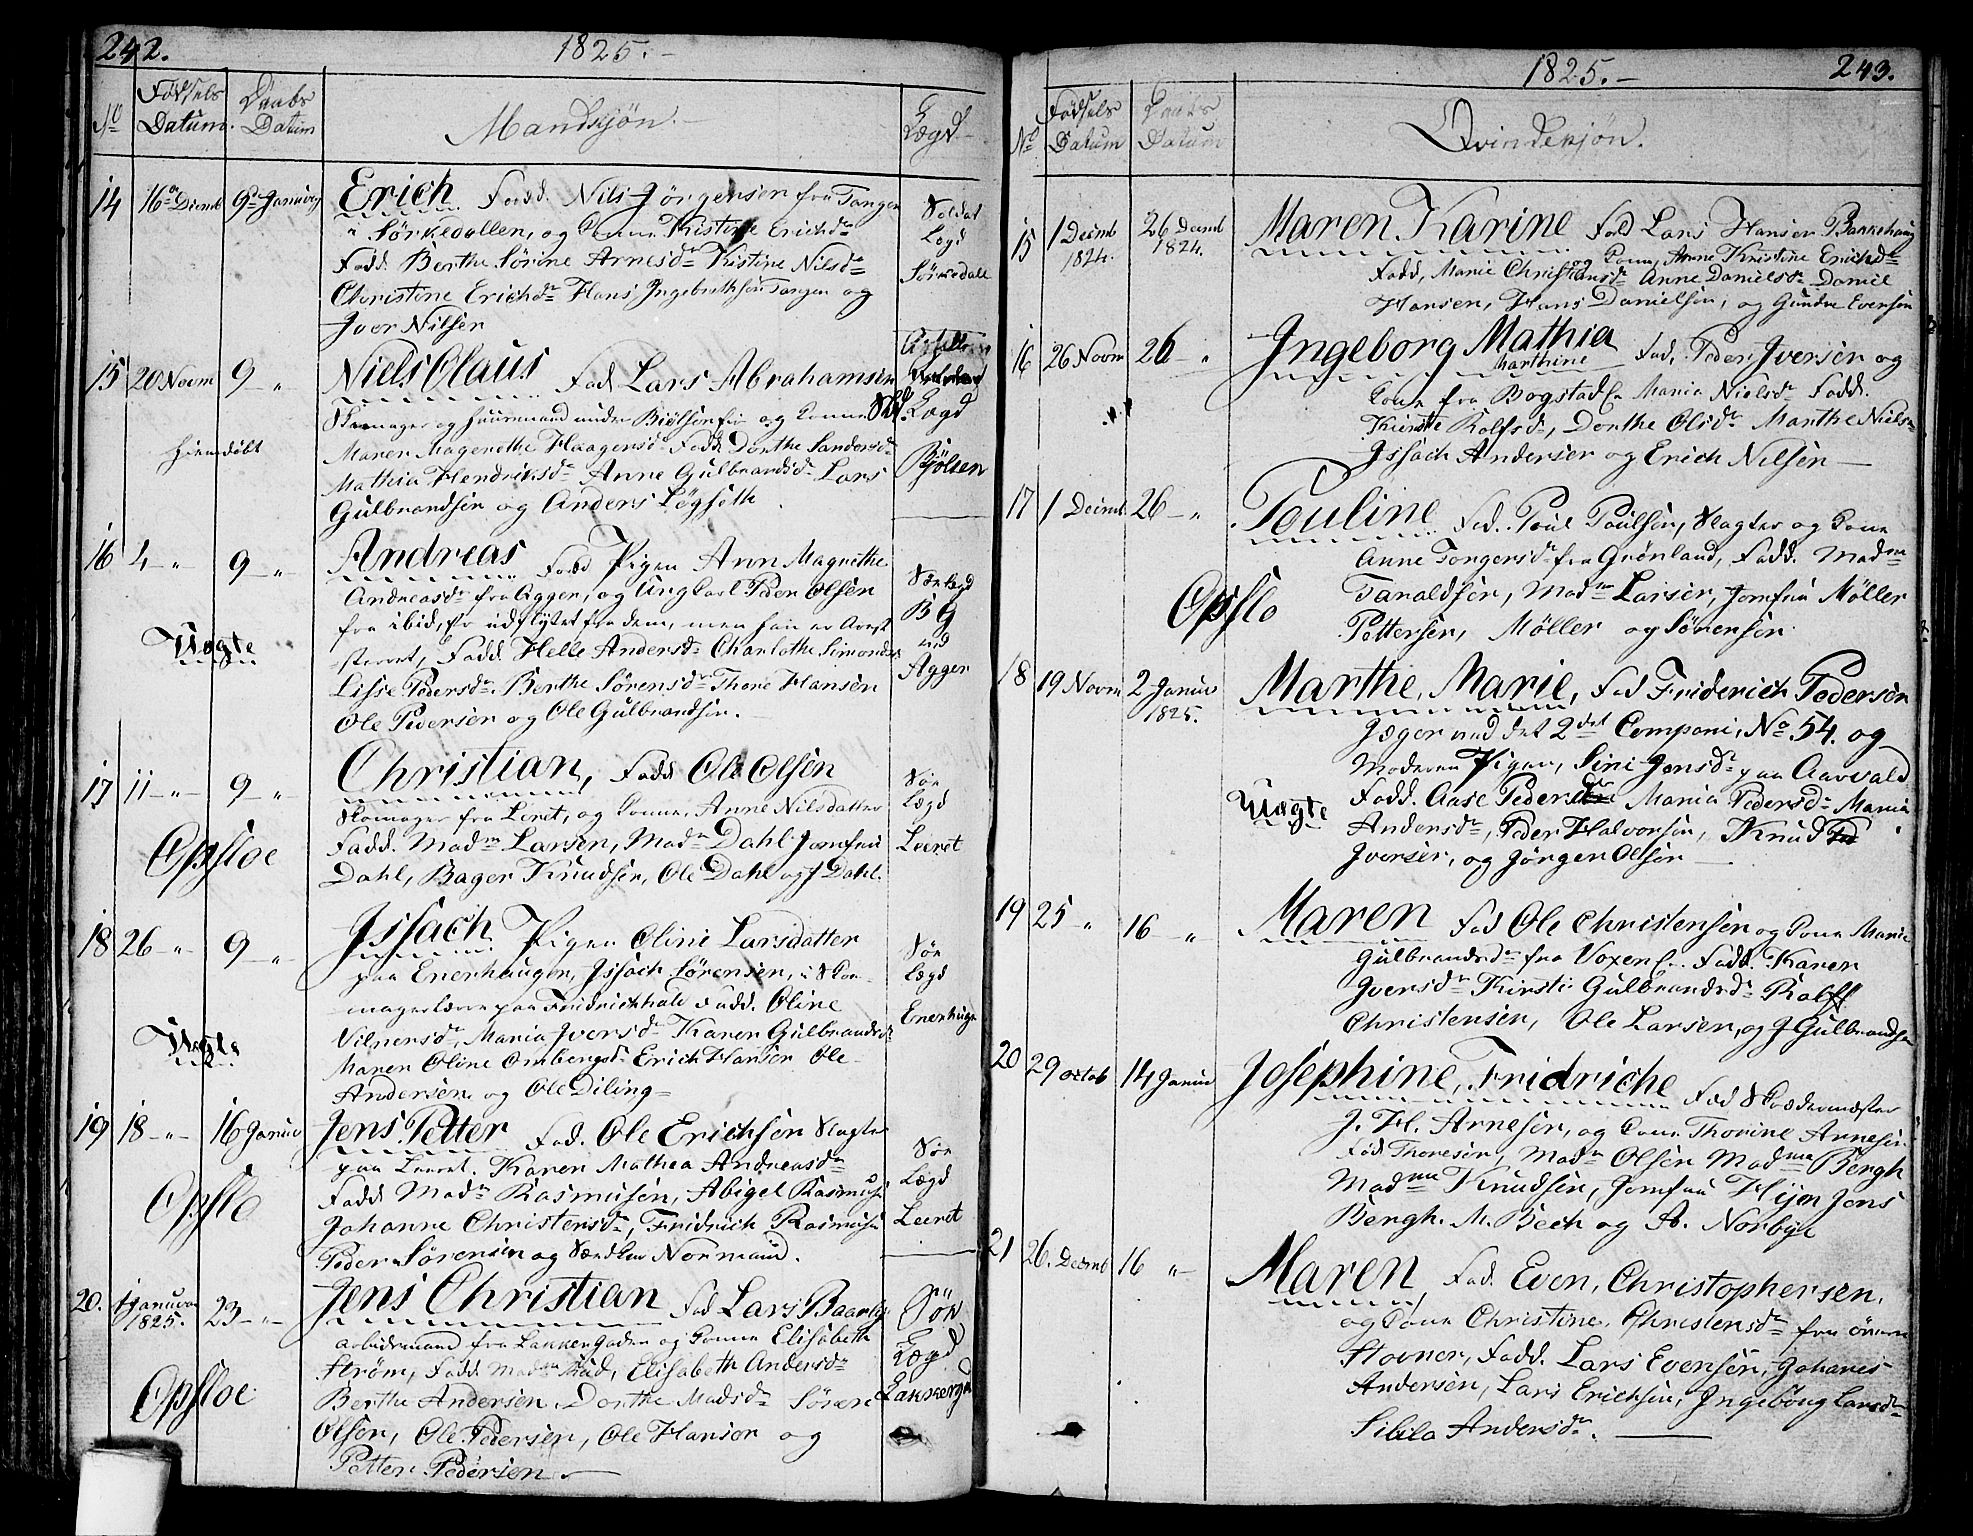 242.
1825.
No
Fødsels Datum.
Daabs Datum
Mandkjøn.
Lægd
14
16de Decmb
9de Januarij
Erich Fød. Nils Jörgensen fra Tangen
i Sörkedallen, og Kone Kistine Erichsd
Fadd. Berthe Sörine Arnesd Kistine Nilsd
Christine Erichsd Hans Ingebrethsen Tangen og
Iver Nilsen
Soldat
Lægd
Sörkedall
15
20 Novm
9 "
hiemdøbt
Niels Olaus Fød Lars Abrahamsen
Skomager og huusmand under Biölsen og Kone
Maren Magrethe Haagensd Fadd. Dorthe Sandersd
Mathia Hendriksd Anne Gulbrandsd Lars
Gulbrandsen og Anders Lögsæth
Lægd
Bjölsen
16
4 "
9 "
Uægte
Andreas Fød Pigen Ann Magrethe
Andreasd fra Agger, og Ungkarl Peder Olsen
fra ibid, er udflyttet fra dem, men han er Arre-
steret, Fadd. Helle Andersd Charlothe Simonsd
Lisse Pedersd Berthe Sörensd Thore Hansen
Ole Pedersen og Ole Gulbrandsen.
Agger
17
11 "
9 "
Opsloe
Christian, Fødd Ole Olsen
Skomager fra Leret, og Konne Anne Nilsdatter
Fadd. Madm Larsen, Madm Dahl Jomfru
Dahl, Bager Knudsen, Ole Dahl og J Dahl.
Sör
Lægd
Leeret
18
26 "
9 "
Uægte
Issach Pigen Oline Larsdatter
paa Enerhaugen, Issach Sörensen, i Sko-
magerlære paa Fridrichhald Fadd. Oline
Vilnersd, Maria Iversd Karen Gulbrandsd
Maren Oline Ombergsd Erich Hansen Ole
Andersen og Ole Diling
Sör
Lægd
Enerhuge
19
18 "
16 Januar
Opslo
Jens Petter Fød. Ole Erichsen Slagter
paa Leeret. Karen Mathea Andreasd
Fadd Madm Rasmusen, Abigel Rasmus
Johanne Christensd, Fridrich Rasmus
Peder Sörensen og Normand.
Sör
Lægd
Leeret
20.
1 Januar 1825.
23 "
Opsloe
Jens Christian Fød Lars Baarby
arbeidsmand fra Lakkergaden og Konne Elisabeth
Ström, Fadd. Madm Elisabeth Andersd
Berthe Andersen Dorthe Madsd Sören
Olsen, Ole Pedersen, Ole Hansen og
Petter Pedersen
Sör
Lægd
Lakkergd
1825.
243.
No
Fødsels Datum
Daabs Datum
Qvindekjön.
15
1 Decmb 1824.
26 Decmb 1824.
Maren Karine Fød Lars Hansen Bakkehaug
og Kone, Anne Kristine Erichsd
Fadd, Marie Christiansd Anne Danielsd Daniel
Hansen, Hans Danielsen, og Gundre Evensen
16
26 Novm
26 "
Ingeborg Mathia Marthine Fød. Peder Iversen og
Kone fra Bogstad Maria Nielsd Fadd.
Kirste Rolfsd, Dorthe Olsd Marthe Niels
Issach Andersen og Erich Nilsen
17
1 Decmb
26 "
Opslo
Pouline Fød. Poul Poulsen, Slagter og Kone
Anne Torgersd fra Grönland, Fadd. Madm
Taraldsen, Madm Larsen, Jomfru Möller
Pettersen, Möller og Sörensen
18
19 Novm
2 Januar 1825.
Uægte
Marthe, Marie, Fød Friderich Pedersen
Jæger ved det 2det Compani, No 54. og
Moderen Pigen, Sini Jensd paa Aavesald
Fadd. Aase Pedersd Maria Pedersd Maria
Andersd, Peder Halvorsen, Knud
Iversen, og Jörgen Olsen
19
25 "
16 "
Maren Fød Ole Christensen og Kone Marie
Gulbrandsd fra Voxen Fadd. Karen
Iversd Kirsti Gulbrandsd Rolff
Christensen, Ole Larsen, og J Gulbrandsen
20
29 octob
14 Januar
Josephine, Fridriche Fød Skrædermester
J. H. Arnesen, og Kone Thorine Arnesen
Fød Thoresen, Madm Olsen Madme Bergh
Madme Knudsen, Jomfru Jens
Bergh. M. Bech og A. Norbye
21
26. Decmb
16 "
Maren Fød. Even, Christophersen,
og Kone Christine, Christensd fra övre
Stovner, Fadd. Lars Evensen, Johanes
Andersen, Lars Erichsen, Ingeborg Larsd
Sibila Andersd.